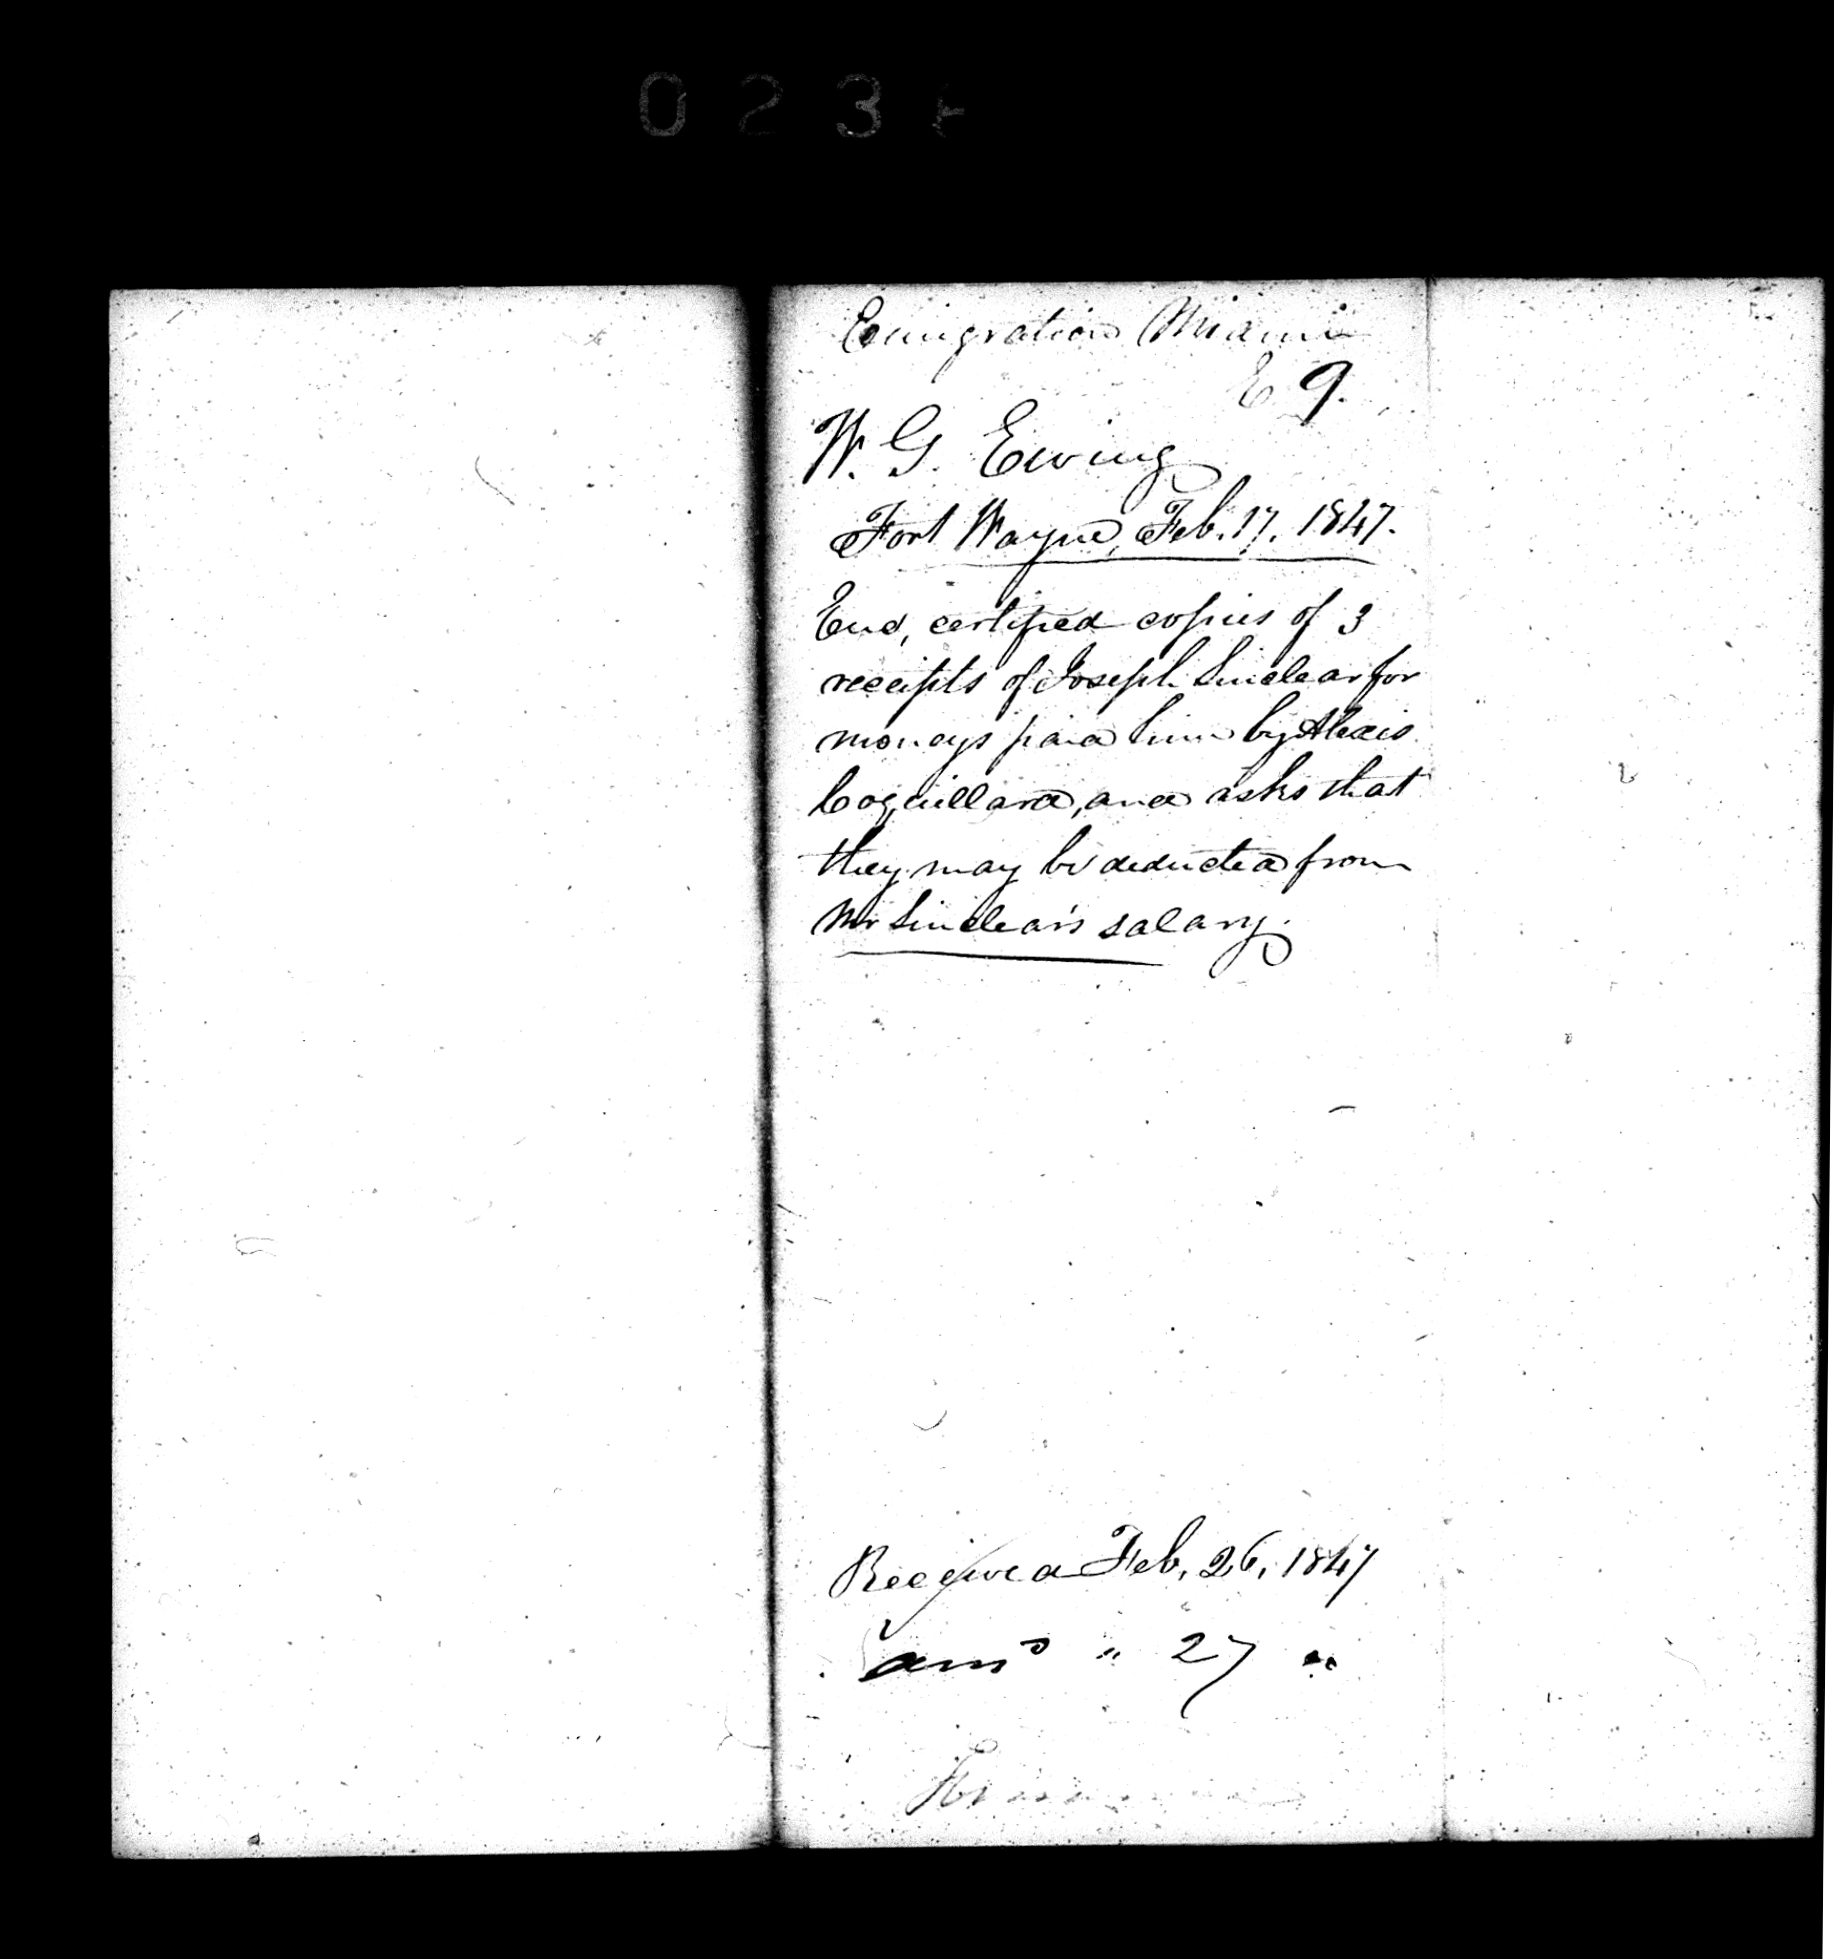 023
Emigration Miami
E 9.
W. G. Ewing
Fort Wayne, Feb. 17, 1847.
Enc, certified copies of 3
receipts of Joseph Sinclear for
moneys paid him by Alexis
Coquillard, and asks that
they may be deducted from
Mr Sinclear's salary.
Received Feb. 26, 1847
ansd " 27 "